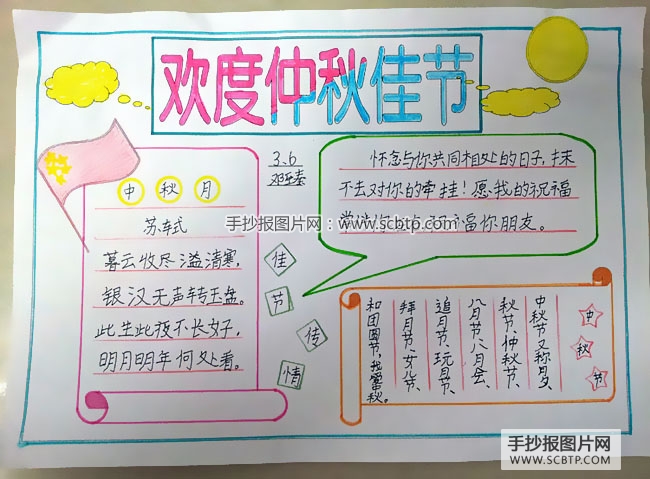 欢度仲秋佳节
3.6
中秋月
苏轼
暮云收尽溢清寒,
银汉无声转玉盘。
此生此夜不长好,
明月明年何处看。
怀念与你共同相处的日子,抹
不去对你的牵挂!愿我的祝福
福你朋友。
手抄报图片网:www.scbtp.com
佳
节
传
情
中秋节
中秋节又称月夕、
秋节、仲秋节、
八月节八月会、
追月节、玩月节、
拜月节、女儿节、
和团圆节,我 秋。
手抄报图片网
WWW.SCBTP.COM